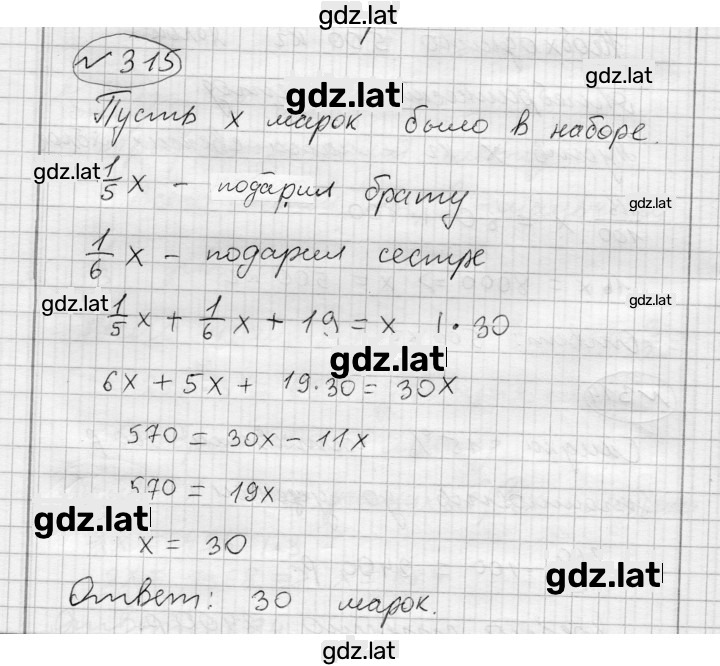 gdz.lat
№ 315
gdz.lat
gdz.lat
Пусть x марок было в наборе.
gdz.lat
1/5 x - подарил брату
gdz.lat
1/6 x - подарил сестре
gdz.lat
gdz.lat
1/5 x + 1/6 x + 19 = x | · 30
gdz.lat
6x + 5x + 19·30 = 30x
570 = 30x - 11x
570 = 19x
gdz.lat
x = 30
gdz.lat
Ответ: 30 марок.
gdz.lat